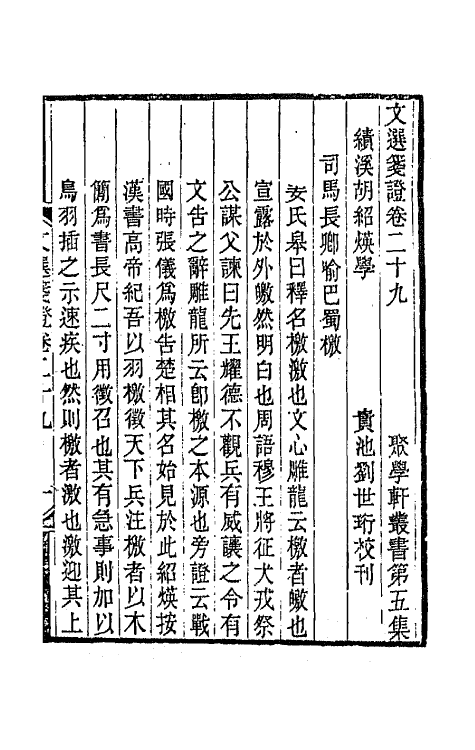 文選箋證卷二十九　聚學軒叢書第五集
績溪胡紹煐學　貴池劉世珩校刊
司馬長卿喻巴蜀檄
姜氏皋曰釋名檄激也文心雕龍云檄者皦也
宣露於外皦然明白也周語穆王將征犬戎祭
公謀父諫曰先王耀德不觀兵有威讓之令有
文告之辭雕龍所云卽檄之本源也旁證云戰
國時張儀爲檄告楚相其名始見於此紹煐按
漢書高帝紀吾以羽檄徵天下兵注檄者以木
簡爲書長尺二寸用徵召也其有急事則加以
鳥羽插之示速疾也然則檄者激也激迎其上
文選箋證卷二十九　一